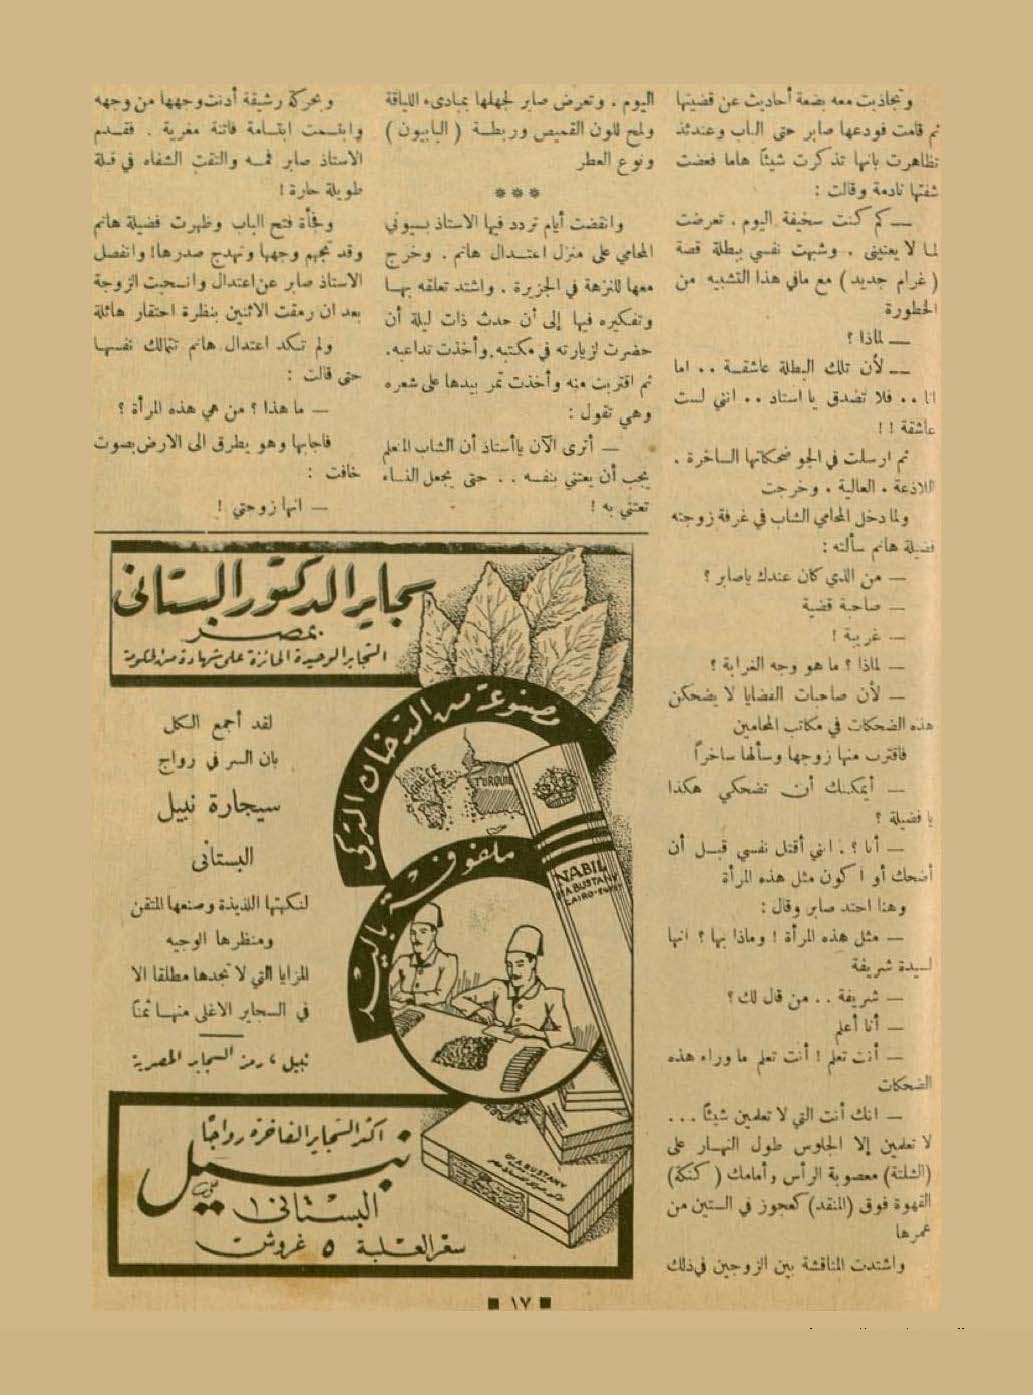 وتجاذبت معه بضعة أحاديث عن قضيتها
ثم قامت فودعها صابر حتى الباب وعندئذ
تظاهرت بانها تذكرت شيئاً هاما فعضت
شفتها نادمة وقالت :
— كم كنت سخيفة اليوم . تعرضت
لما لا يعنيني . وشبهت نفسي ببطلة قصة
( غرام جديد ) مع مافي هذا التشبيه من
الخطورة
— لماذا ؟
— لأن تلك البطلة عاشقة .. اما
انا .. فلا تصدق يا استاذ .. انني لست
عاشقة ! !
ثم ارسلت في الجو ضحكاتها الساخرة .
اللاذعة . العالية . وخرجت
ولما دخل المحامي الشاب في غرفة زوجته
فضيلة هانم سألته :
— من الذي كان عندك ياصابر ؟
— صاحبة قضية
— غريبة !
— لماذا ؟ ما هو وجه الغرابة ؟
— لأن صاحبات القضايا لا يضحكن
هذه الضحكات في مكاتب المحامين
فاقترب منها زوجها وسألها ساخراً
— أيمكنك أن تضحكي هكذا
يا فضيلة ؟
— أنا ؟ . انني أقتل نفسي قبل أن
أضحك أو أكون مثل هذه المرأة
وهنا احتد صابر وقال :
— مثل هذه المرأة ! وماذا بها ؟ انها
لسيدة شريفة
— شريفة .. من قال لك ؟
— أنا أعلم
— أنت تعلم ! أنت تعلم ما وراء هذه
الضحكات
— انك أنت التي لا تعلمين شيئاً ...
لا تعلمين إلا الجلوس طول النهار على
(الشلتة) معصوبة الرأس وأمامك (كنكة)
القهوة فوق (المنقد) كعجوز في الستين من
عمرها
واشتدت المناقشة بين الزوجين في ذلك
اليوم . وتعرض صابر لجهلها بمبادىء اللباقة
ولمح للون القميص وربطة ( البابيون )
ونوع العطر
***
وانقضت أيام تردد فيها الاستاذ بسيوني
المحامي على منزل اعتدال هانم . وخرج
معها للنزهة في الجزيرة . واشتد تعلقه بها
وتفكيره فيها إلى أن حدث ذات ليلة أن
حضرت لزيارته في مكتبه . وأخذت تداعبه .
ثم اقتربت منه وأخذت تمر بيدها على شعره
وهي تقول :
— أترى الآن ياأستاذ أن الشاب المتعلم
يجب أن يعتني بنفسه .. حتى يجعل النساء
تعتني به !
وبحركة رشيقة أدنت وجهها من وجهه
وابتسمت ابتسامة فاتنة مغرية . فقدم
الاستاذ صابر فمه والتقت الشفاه في قبلة
طويلة حارة !
وفجأة فتح الباب وظهرت فضيلة هانم
وقد تجهم وجهها وتهدج صدرها ! وانفصل
الاستاذ صابر عن اعتدال وانسحبت الزوجة
بعد ان رمقت الاثنين بنظرة احتقار هائلة
ولم تكد اعتدال هانم تتمالك نفسها
حتى قالت :
— ما هذا ؟ من هي هذه المرأة ؟
فاجابها وهو يطرق الى الارض بصوت
خافت :
— انها زوجتي !
سجاير الدكتور البستاني
بمصر
السجاير الوحيدة الحائزة على شهادة من الحكومة
مصنوعة من الدخان التركي
GRÈCE
TURQUIE
ملفوفة باليد
NABIL
BUSTANY
CAIRO-EGYPT
لقد أجمع الكل
بان السر في رواج
سيجارة نبيل
البستاني
لنكهتها اللذيذة وصنعها المتقن
ومنظرها الوجيه
المزايا التي لا تجدها مطلقا الا
في السجاير الاغلى منها ثمنا
نبيل ، رمز السجاير المصرية
BUSTANY
اكثر السجاير الفاخرة رواجاً
نبيل
البستاني
سعر العلبة ٥ غروش
■ ١٧ ■